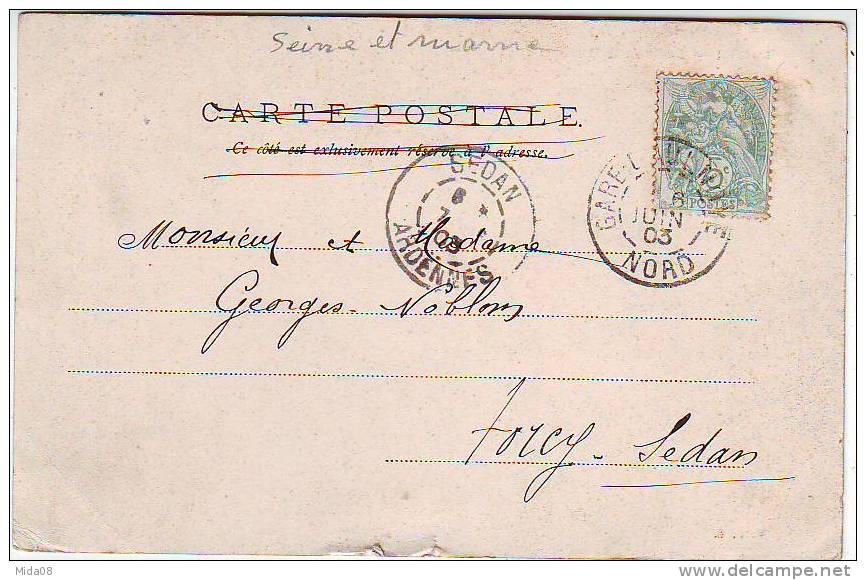 Seine et marne
CARTE POSTALE.
Ce côté est exlusivement réservé à l'adresse.
SEDAN
6
7
03
ARDENNES
GARE
6
JUIN
03
NORD
5c
POSTES
Monsieur et Madame
Georges Noblom
Torcy - Sedan
Mida08
delcampe.net